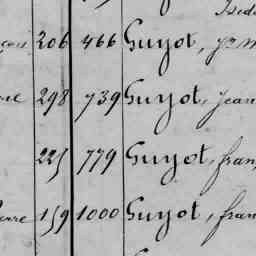 206 466 Guyot, Jn M
298 739 Guyot, Jean
225 779 Guyot, fran
159 1000 Guyot, fran